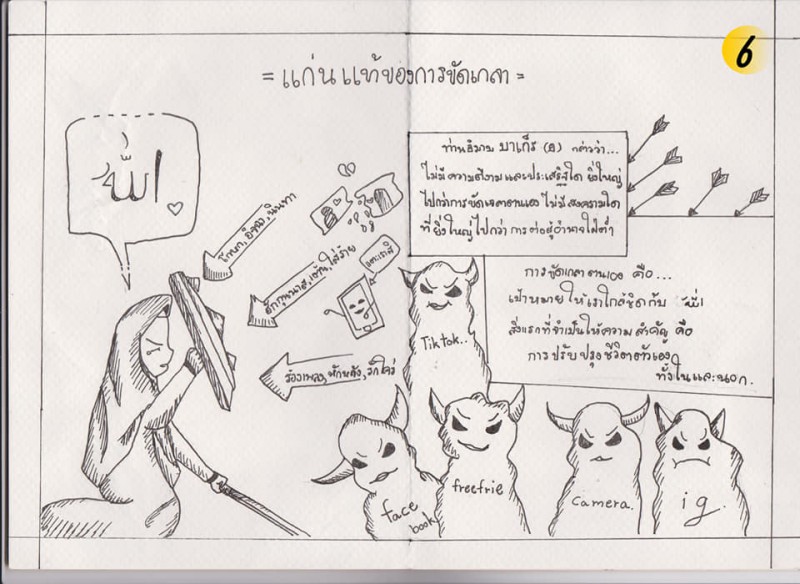 6
= แก่นแท้ของการขัดเกลา =
الله
โกหก, อิจฉา, นินทา
ท่านอิมาม บาเก็ร (อ) กล่าวว่า...
ไม่มีความดีงามและประเสริฐใด ยิ่งใหญ่
ไปกว่าการขัดเกลาตนเอง ไม่มีสงครามใด
ที่ยิ่งใหญ่ไปกว่า การต่อสู้อำนาจใฝ่ต่ำ
ใส่ร้าย
การขัดเกลาตนเอง คือ...
เป้าหมายให้เราใกล้ชิดกับ الله
สิ่งแรกที่จำเป็นให้ความสำคัญ คือ
การปรับปรุงชีวิตตัวเอง
ทั้งในและนอก.
ร้องเพลง,
Tiktok..
face
book
freefrie
camera.
ig.